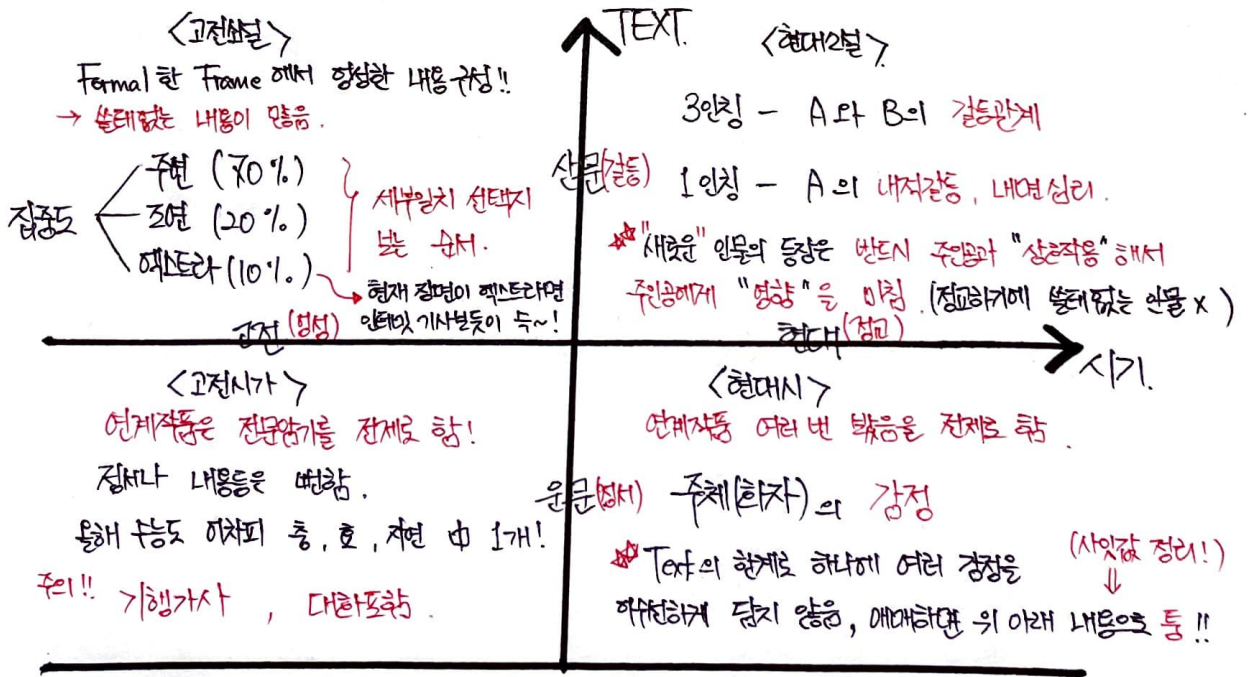 TEXT.
<고전소설>
Formal 한 Frame 에서 엉성한 내용구성!!
→ 쓸데없는 내용이 많음.
집중도
주연 (70%)
조연 (20%)
엑스트라 (10%)
세부일치 선택지
보는 순서.
현재 장면이 엑스트라면
인터넷 기사보듯이 슥~!
<현대소설>
3인칭 - A와 B의 갈등관계
산문(갈등)
1인칭 - A의 내적갈등, 내면심리.
"새로운" 인물의 등장은 반드시 주인공과 "상호작용"해서
주인공에게 "영향"을 미침. (정교하기에 쓸데없는 인물 x)
고전(엉성)
현대(정교)
시기.
<고전시가>
연계작품은 전문암기를 전제로 함!
정서나 내용등은 뻔함.
올해 수능도 어차피 충, 효, 자연 中 1개!
주의!! 기행가사, 대화포함.
<현대시>
연계작품 여러 번 봤음을 전제로 함.
운문(정서)
주체(화자)의 감정
Text의 한계로 하나에 여러 감정을
어수선하게 담지 않음, 애매하면 위 아래 내용으로 퉁!!
(사잇값 정리!)
⇓